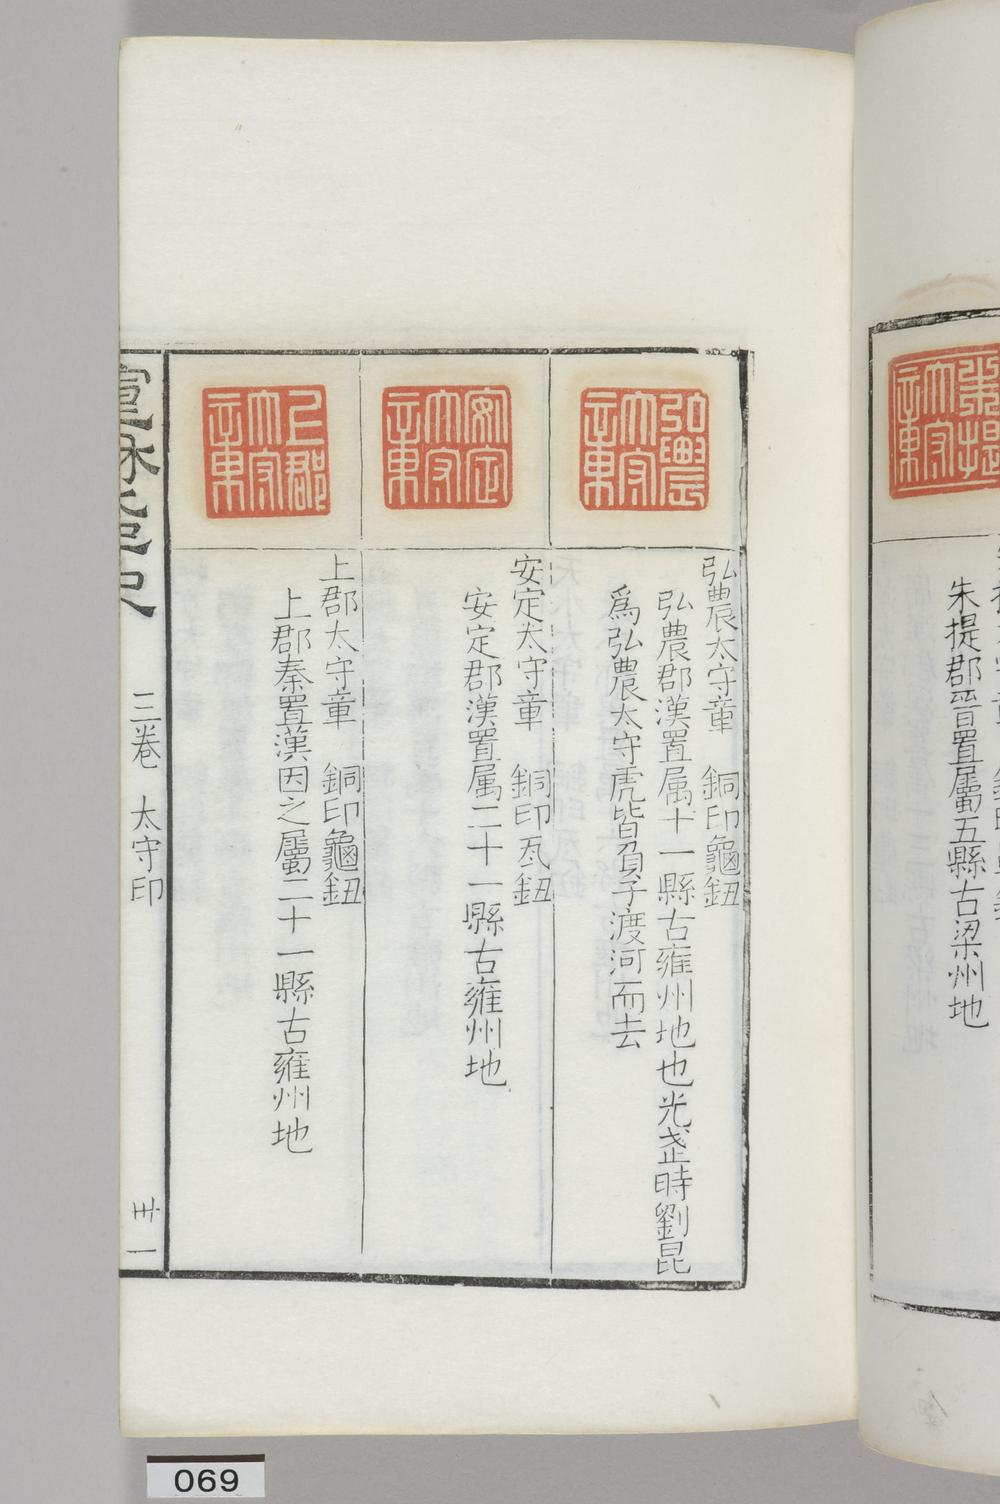 朱提
太守
章
朱提郡晉置屬五縣古梁州地
弘農
太守
章
弘農太守章　銅印龜鈕
弘農郡漢置属十一縣古雍州地也光武時劉昆
爲弘農太守虎皆負子渡河而去
安定
太守
章
安定太守章　銅印瓦鈕
安定郡漢置属二十一縣古雍州地
上郡
太守
章
上郡太守章　銅印龜鈕
上郡秦置漢因之屬二十一縣古雍州地
三卷　太守印
卅一
069